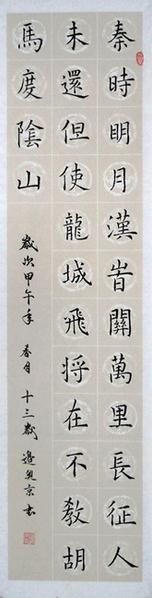 秦時明月漢旹關萬里長征人
未還但使龍城飛将在不教胡
馬度陰山
歲次甲午年 春月 十三歲 書